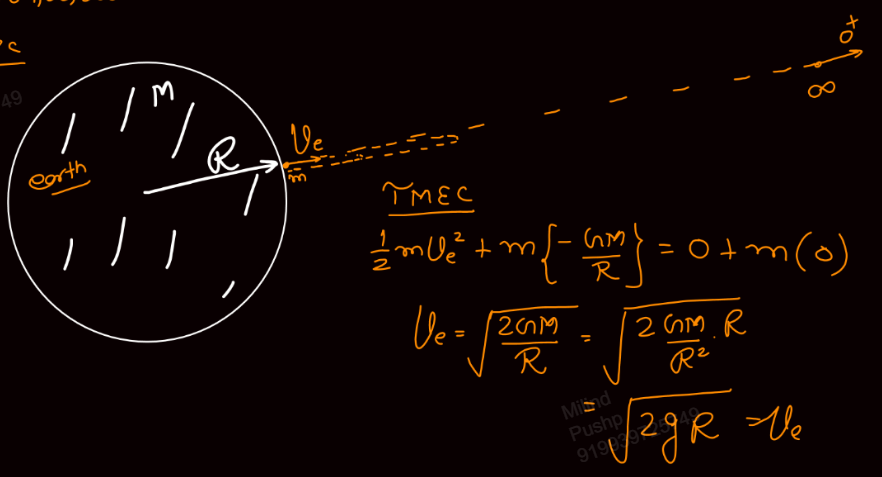 0⁺
∞
M
R
earth
Vₑ
m
TMEC
½mVₑ² + m{-GM/R} = 0 + m(0)
Vₑ = √(2GM/R) = √(2GM/R² · R)
= √(2gR) = Vₑ
Milind
Pushp
49